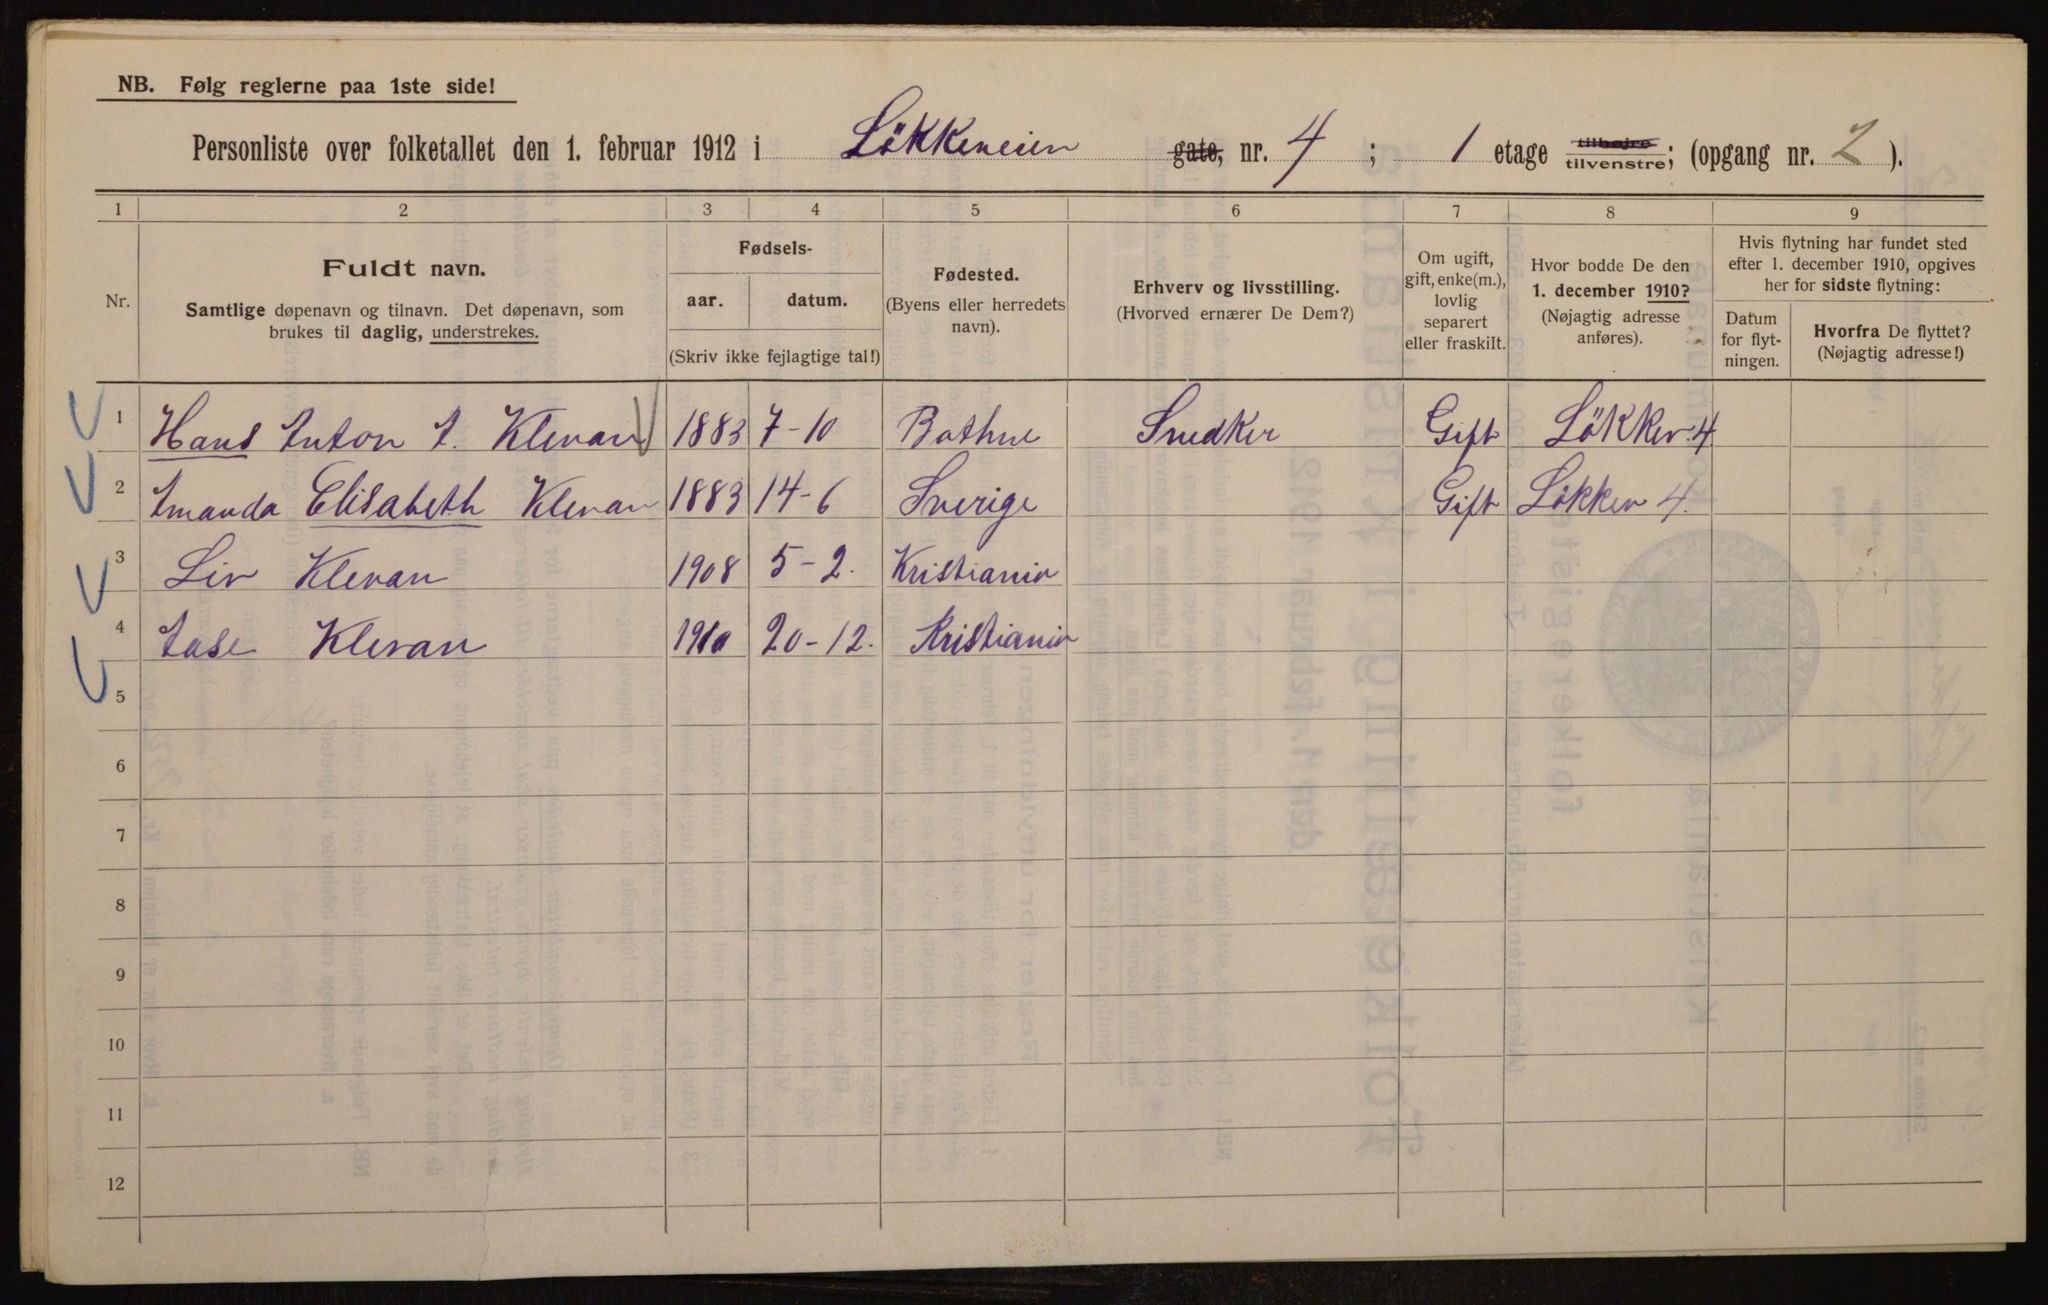 NB. Følg reglerne paa 1ste side!
Personliste over folketallet den 1. februar 1912 i Lökkeveien gate, nr. 4 ; 1 etage tilhøjre tilvenstre; (opgang nr. 2 ).
1 2 3 4 5 6 7 8 9
Nr.
Fuldt navn.
Samtlige døpenavn og tilnavn. Det døpenavn, som
brukes til daglig, understrekes.
Fødsels-
aar. datum.
(Skriv ikke fejlagtige tal!)
Fødested.
(Byens eller herredets
navn).
Erhverv og livsstilling.
(Hvorved ernærer De Dem?)
Om ugift,
gift, enke(m.),
lovlig
separert
eller fraskilt.
Hvor bodde De den
1. december 1910?
(Nøjagtig adresse
anføres).
Hvis flytning har fundet sted
efter 1. december 1910, opgives
her for sidste flytning:
Datum
for flyt-
ningen.
Hvorfra De flyttet?
(Nøjagtig adresse!)
1 Hans Anton A. Klevan 1883 7-10 Bothne Snedker Gift Lökkev. 4
2 Amanda Elisabeth Klevan 1883 14-6 Sverige Gift Lökkev 4.
3 Liv Klevan 1908 5-2. Kristiania
4 Aase Klevan 1910 20-12. Kristiania
5
6
7
8
9
10
11
12